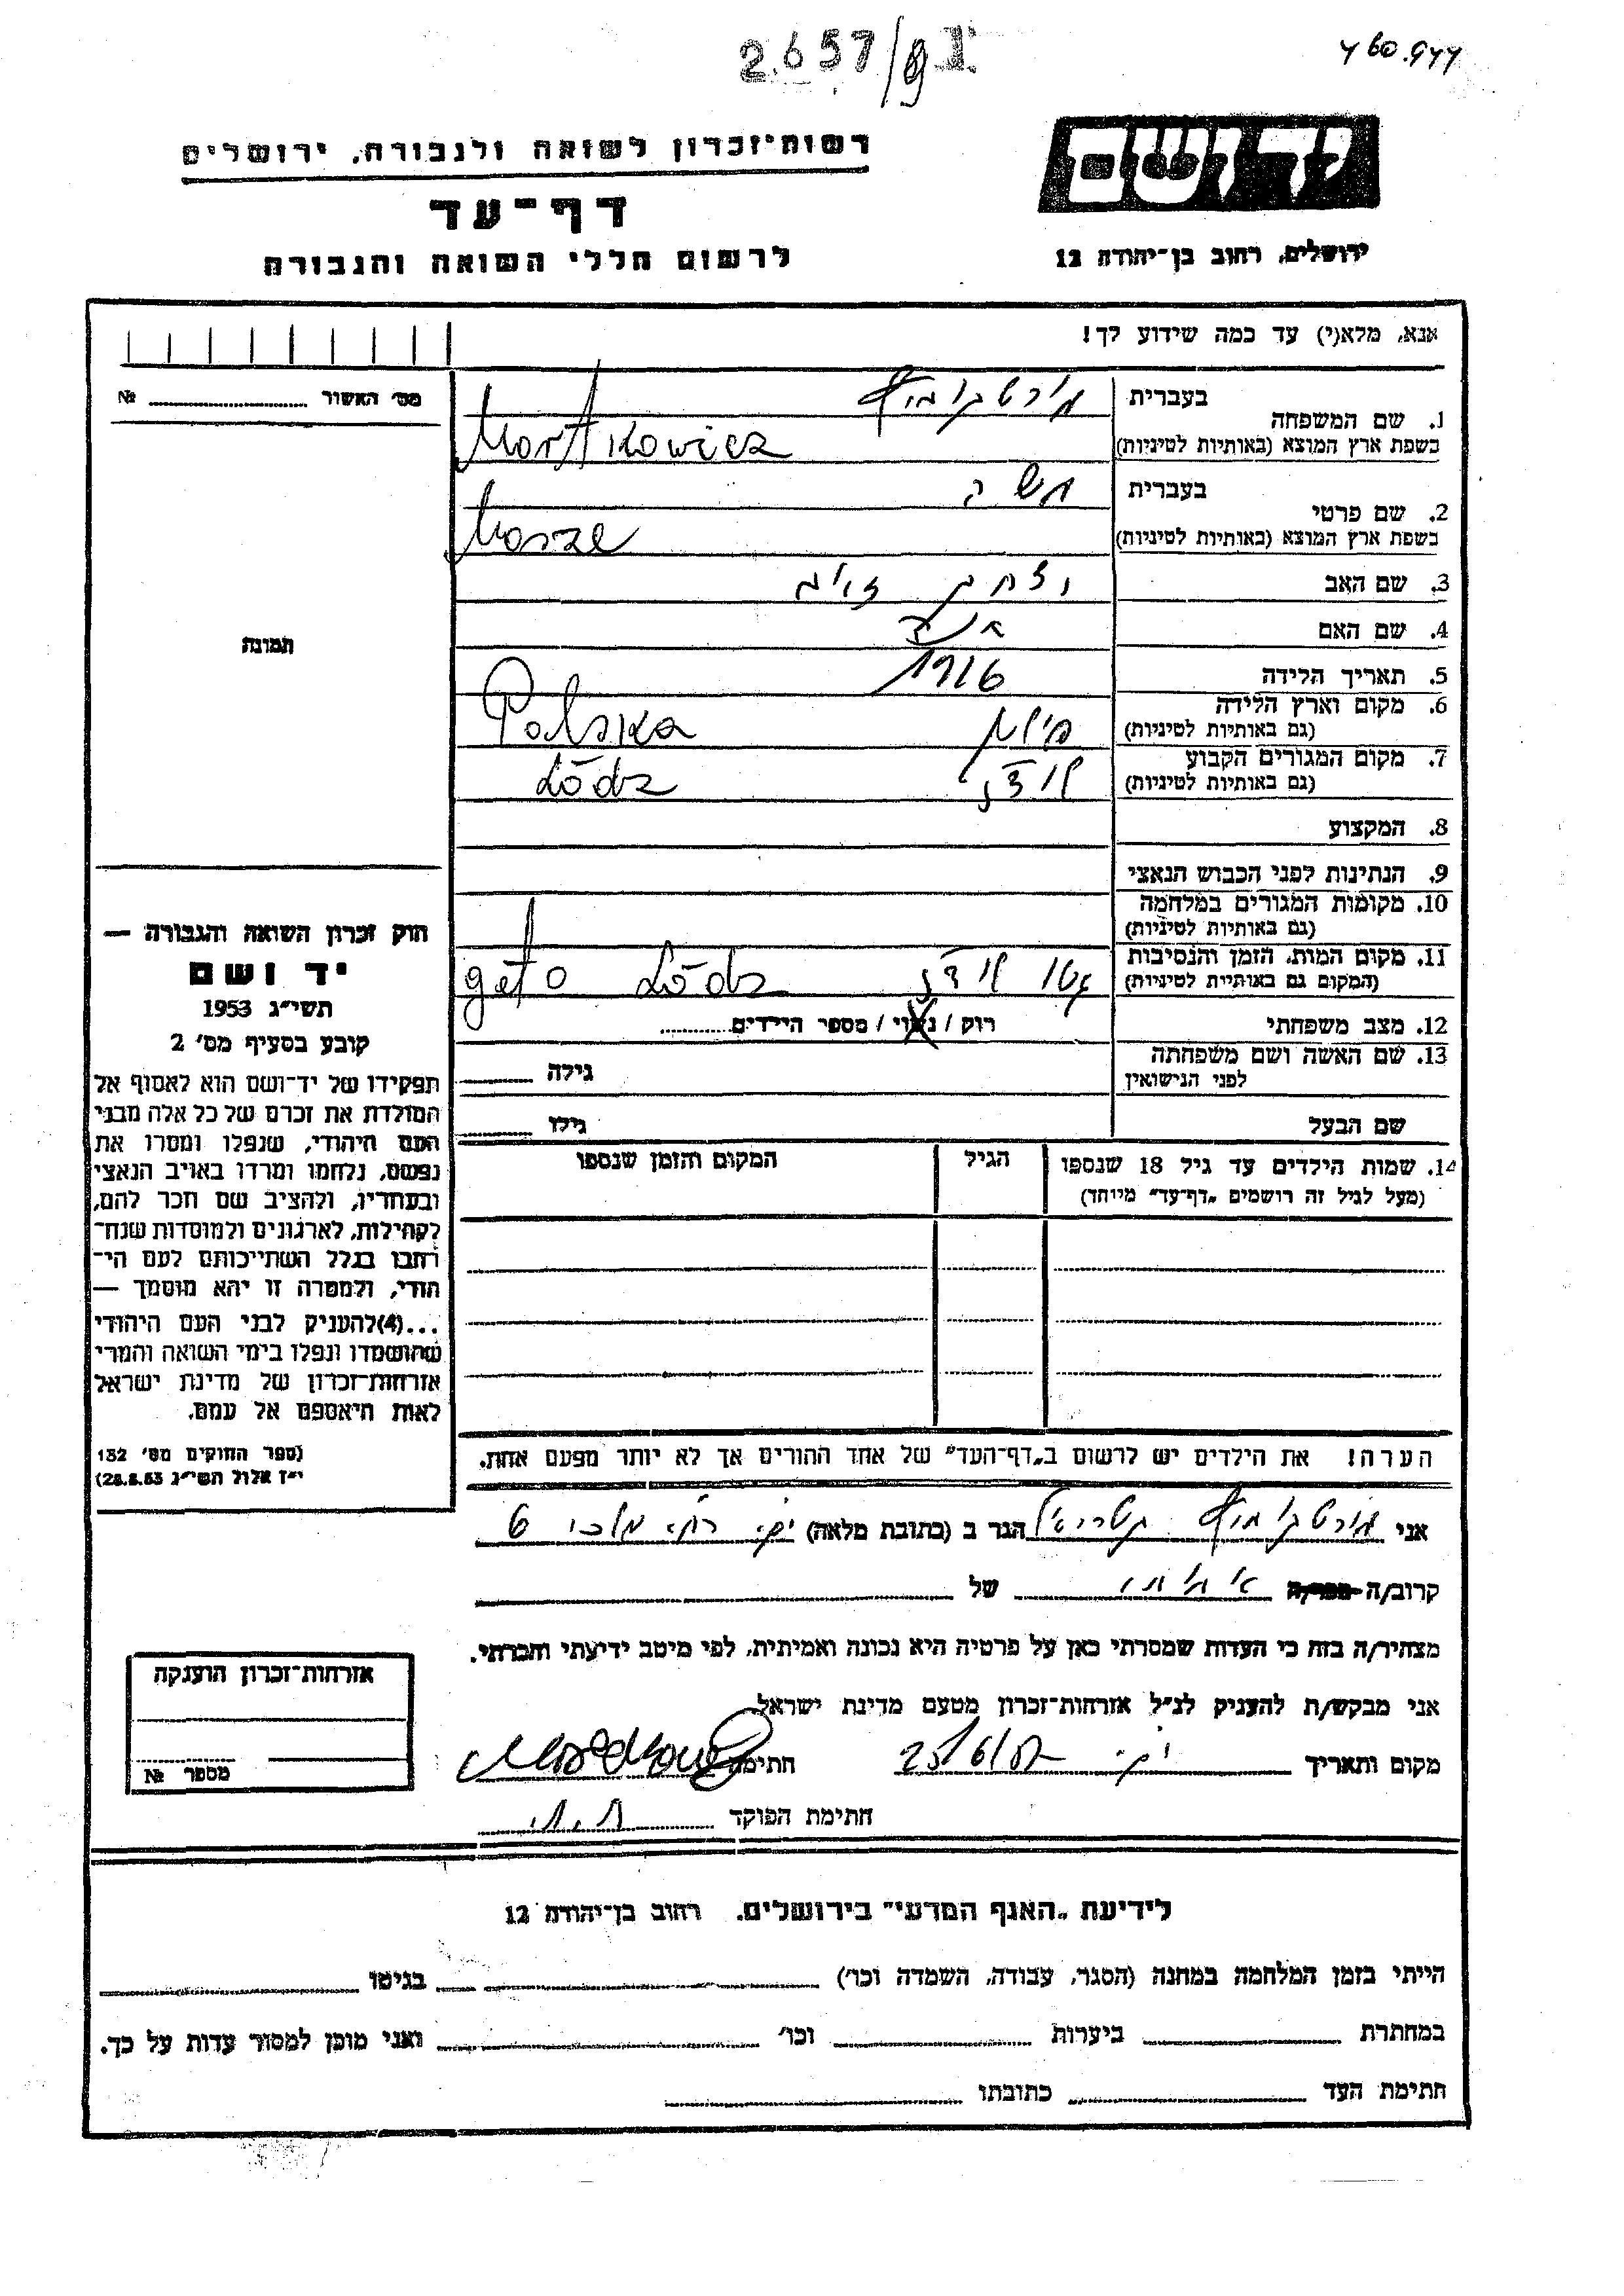 2657/91
יד ושם
רשות־זכרון לשואה ולגבורה, ירושלים
דף־עד
לרשום חללי השואה והגבורה
ירושלים, רחוב בן־יהודה 12
אנא, מלא(י) עד כמה שידוע לך!
מס׳ האשור № 
1. שם המשפחה
בעברית
בשפת ארץ המוצא (באותיות לטיניות)
Mortkowicz
2. שם פרטי
בעברית משה
בשפת ארץ המוצא (באותיות לטיניות)
Mosze
3. שם האב
4. שם האם
5. תאריך הלידה 1916
6. מקום וארץ הלידה
(גם באותיות לטיניות)
פולין Polska
7. מקום המגורים הקבוע
(גם באותיות לטיניות)
לודז׳ Łódz
8. המקצוע
9. הנתינות לפני הכבוש הנאצי
10. מקומות המגורים במלחמה
(גם באותיות לטיניות)
11. מקום המות, הזמן והנסיבות
(המקום גם באותיות לטיניות)
גטו לודז׳ geto Łódz
12. מצב משפחתי רוק / נשוי / מספר הילדים
13. שם האשה ושם משפחתה
לפני הנישואין
גילה
שם הבעל
גילו
14. שמות הילדים עד גיל 18 שנספו
(מעל לגיל זה רושמים „דף־עד״ מיוחד)
הגיל
המקום והזמן שנספו
תמונה
חוק זכרון השואה והגבורה —
יד ושם
תשי״ג 1953
קובע בסעיף מס׳ 2
תפקידו של יד־ושם הוא לאסוף אל
המולדת את זכרם של כל אלה מבני
העם היהודי, שנפלו ומסרו את
נפשם, נלחמו ומרדו באויב הנאצי
ובעוזריו, ולהציב שם וזכר להם,
לקהילות, לארגונים ולמוסדות שנח־
רבו בגלל השתייכותם לעם הי־
הודי, ולמטרה זו יהא מוסמך —
...(4)להעניק לבני העם היהודי
שהושמדו ונפלו בימי השואה והמרי
אזרחות־זכרון של מדינת ישראל
לאות היאספם אל עמם.
(ספר החוקים מס׳ 132
י״ז אלול תשי״ג 28.8.53)
הערה! את הילדים יש לרשום ב„דף־העד״ של אחד ההורים אך לא יותר מפעם אחת.
אני
הגר ב (כתובת מלאה)
קרוב/ה מכר/ה של
מצהיר/ה בזה כי העדות שמסרתי כאן על פרטיה היא נכונה ואמיתית, לפי מיטב ידיעתי והכרתי.
אני מבקש/ת להעניק לנ״ל אזרחות־זכרון מטעם מדינת ישראל
מקום ותאריך
חתימה
חתימת הפוקד
אזרחות־זכרון הוענקה
מספר №
לידיעת „האגף המדעי״ בירושלים, רחוב בן־יהודה 12
הייתי בזמן המלחמה במחנה (הסגר, עבודה, השמדה וכו׳) בגיטו
במחתרת ביערות וכו׳ ואני מוכן למסור עדות על כך.
חתימת העד כתובתו